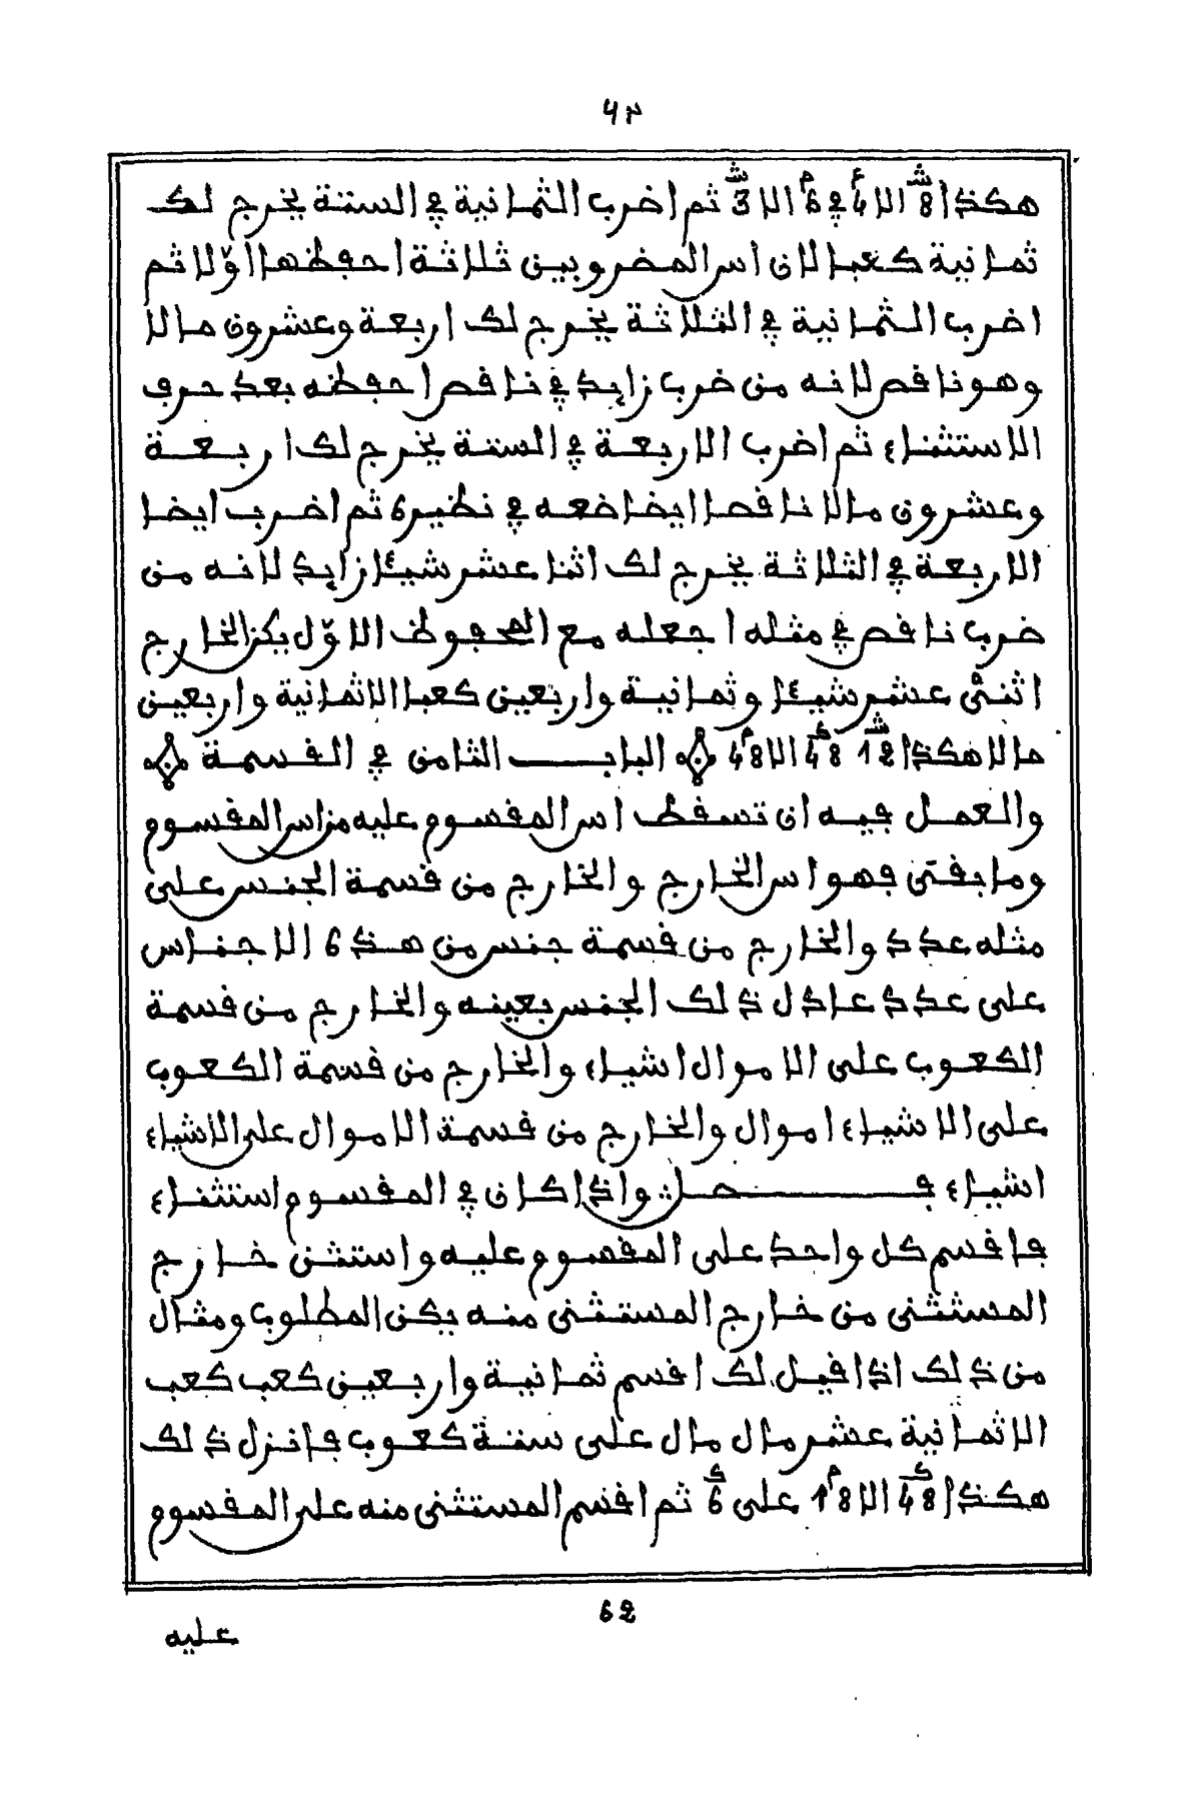 ٦٢
هكذا 8ش الا 4ع في 6م الا 3ش ثم اضرب الثمانية في الستة يخرج لك
ثمانية كعبا لان اس المضروبين ثلاثة احفظها اوّلا ثم
اضرب الثمانية في الثلاثة يخرج لك اربعة وعشرون مالا
وهو ناقص لانه من ضرب زايد في ناقص احفظه بعد حرف
الاستثناء ثم اضرب الاربعة في الستة يخرج لك اربعة
وعشرون مالا ناقصا ايضا ضعه في نظيره ثم اضرب ايضا
الاربعة في الثلاثة يخرج لك اثنا عشر شيئا زايد لانه من
ضرب ناقص في مثله اجعله مع المحفوظ الاوّل يكن الخارج
اثنى عشر شيئا وثمانية واربعين كعبا الا ثمانية واربعين
مالا هكذا 12ش 48ك الا 48م الباب الثامن في القسمة
والعمل فيه ان تسقط اس المقسوم عليه من اس المقسوم
وما بقى فهو اس الخارج والخارج من قسمة الجنس على
مثله عدد والخارج من قسمة جنس من هذه الاجناس
على عدد عادل ذلك الجنس بعينه والخارج من قسمة
الكعوب على الاموال اشياء والخارج من قسمة الكعوب
على الاشياء اموال والخارج من قسمة الاموال على الاشياء
اشياء فصل واذا كان في المقسوم استثناء
فاقسم كل واحد على المقسوم عليه واستثن خارج
المستثنى من خارج المستثنى منه يكن المطلوب ومثال
من ذلك اذا قيل لك اقسم ثمانية واربعين كعب كعب
الا ثمانية عشر مال مال على ستة كعوب فانزل ذلك
هكذا 48ك الا 18م على 6ك ثم اقسم المستثنى منه على المقسوم
62
عليه